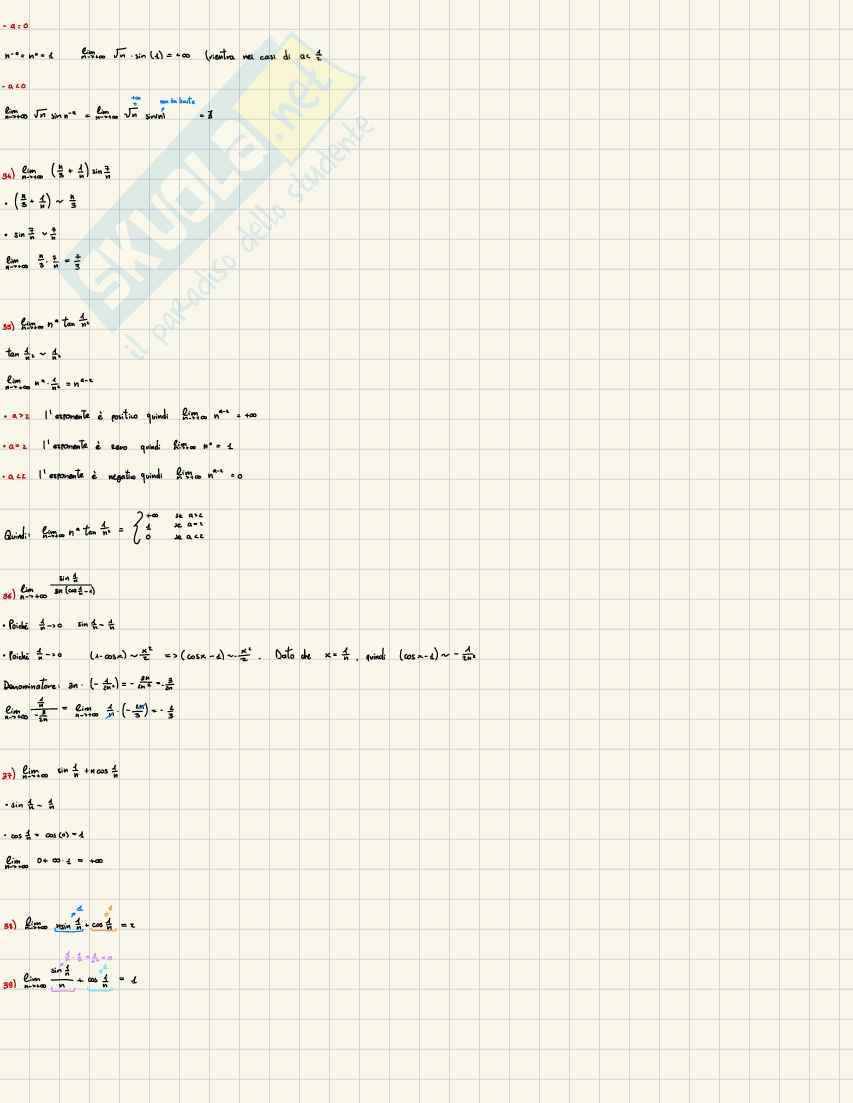 - a=0
n^-a = n^0 = 1 lim n→+∞ √n · sin(1) = +∞ (rientra nei casi di a< 1/2
- a<0
+∞ non ha limite
lim n→+∞ √n sin n^-a = lim n→+∞ √n sin|n| = ∄
34) lim n→+∞ (n/3 + 1/n) sin 7/n
• (n/3 + 1/n) ~ n/3
• sin 7/n ~ 7/n
lim n→+∞ n/3 · 7/n = 7/3
35) lim n→+∞ n^a tan 1/n²
tan 1/n² ~ 1/n²
lim n→+∞ n^a · 1/n² = n^a-2
• a>2 l'esponente è positivo quindi lim n→+∞ n^a-2 = +∞
• a=2 l'esponente è zero quindi lim n→+∞ n^0 = 1
• a<2 l'esponente è negativo quindi lim n→+∞ n^a-2 = 0
Quindi: lim n→+∞ n^a tan 1/n² = { +∞ se a>2
1 se a=2
0 se a<2
36) lim n→+∞ sin 1/n / 3n(cos 1/n - 1)
• Poiché 1/n → 0 sin 1/n ~ 1/n
• Poiché 1/n → 0 (1-cosx) ~ x²/2 => (cosx - 1) ~ - x²/2 . Dato che x = 1/n , quindi (cosx-1) ~ - 1/2n²
Denominatore: 3n · (- 1/2n²) = - 3n/2n² = - 3/2n
lim n→+∞ 1/n / - 3/2n = lim n→+∞ 1/n · (- 2n/3) = - 2/3
37) lim n→+∞ sin 1/n + n cos 1/n
• sin 1/n ~ 1/n
• cos 1/n = cos(0) = 1
lim n→+∞ 0 + ∞ · 1 = +∞
1 1
38) lim n→+∞ nsin 1/n + cos 1/n = 2
1/n · 1/n = 1/n² = 0
1
39) lim n→+∞ sin 1/n / n + cos 1/n = 1
SKUOLA.net
il paradiso dello studente